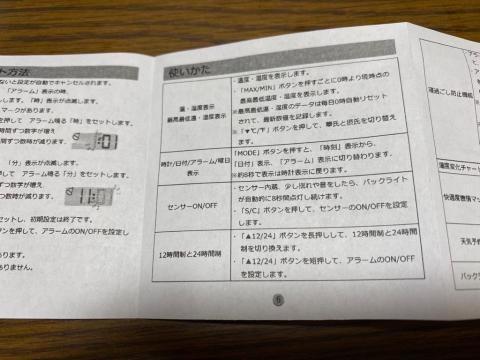 ト方法
ないと設定が自動でキャンセルされます。
「アラーム」表示の時、
します。「時」表示が点滅します。
マークがあります。
を押して アラーム鳴る「時」をセットします。
時間ずつ数字が増え
間ずつ数時が減ります。
「分」表示が点滅します。
押して アラーム鳴る「分」をセットします。
ずつ数字が増え
つ数時が減ります。
セットし、初期設定は終了です。
タンを押して、アラームのON/OFFを設定し
があります。
ありません。
使いかた
温・湿度表示
最高最低温・湿度表示
・温度・湿度を表示します。
・「MAX/MIN」ボタンを押すごとに0時より現時点の
最高最低温・湿度を表示します。
※最高最低温・湿度のデータは毎日0時自動リセット
されて、最新数値を記録します。
※「▼℃/℉」ボタンを押して、華氏と摂氏を切り替え
ます。
時計/日付/アラーム/曜日
表示
「MODE」ボタンを押すと、「時刻」表示から、
「日付」表示、「アラーム」表示に切り替わります。
※約8秒で表示は時計表示に戻ります。
センサーON/OFF
・センサー内蔵、少し揺れや音をしたら、バックライト
が自動的に8秒間点灯し続けます。
・「S/C」ボタンを押して、センサーのON/OFFを設定
します。
12時間制と24時間制
・「▲12/24」ボタンを長押しして、12時間制と24時間
制を切り換えます。
・「▲12/24」ボタンを短押して、アラームのON/OFF
を設定します。
6
寝過ごし防止機能
温度変化チャート
快適度表情マ
天気予
バックラ